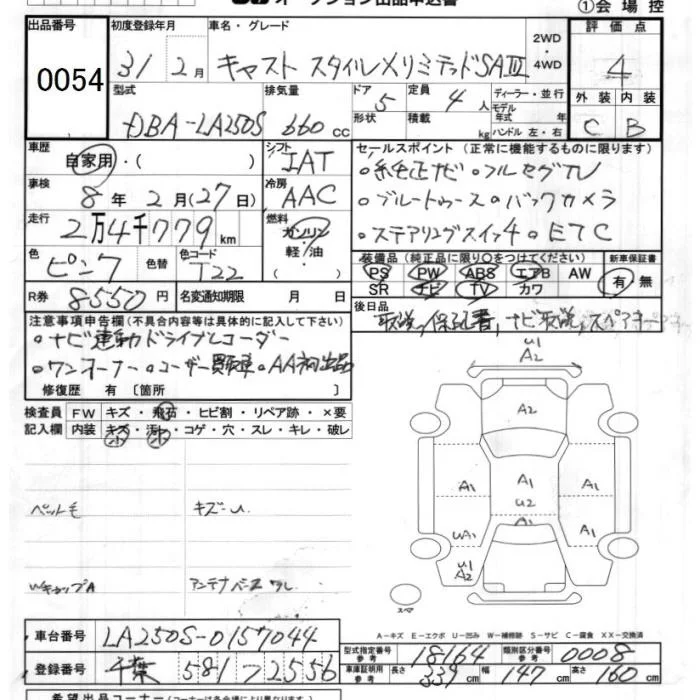 オークション出品申込書 ①会場控
出品番号 初度登録年月 車名・グレード 2WD・4WD 評価点
0054 31 2月 キャスト スタイルXリミテッドSAⅢ 4
型式 排気量 ドア 5 定員 4人 ディーラー・並行 外装 内装
DBA-LA250S 660cc 形状 積載 kg モデル年式 年 ハンドル 左・右 C B
車歴 シフト セールスポイント (正常に機能するものに限ります)
自家用・( ) IAT 。純正ナビ。フルセグTV
車検 8年2月(27日) 冷房 AAC 。ブルートゥース。バックカメラ
走行 2万4千779km 燃料 ガソリン 軽/油 ( ) 。ステアリングスイッチ。ETC
色 ピンク 色替 色コード T22 装備品(純正品に限り○をつけてください) 新車保証書
PS PW ABS エアB AW 有・無
SR ナビ TV カワ
R券 8550円 名変通知期限 月 日 後日品
取説、保証書、ナビ取説、スペアキー
注意事項申告欄(不具合内容等は具体的に記入して下さい)
。ナビ連動ドライブレコーダー
。ワンオーナー。ユーザー買取車。AA初出品
修復歴 有〔箇所 〕
検査員 FW キズ・飛石・ヒビ割・リペア跡・×要
記入欄 内装 キズ・汚れ・コゲ・穴・スレ・キレ・破レ
小 小
U1
A2
A2
A1 A1 U2 A1
A1
UA1 A1
U1
A2
ペット毛 キズ=U.
WキャップA アンテナベースワレ
スペア
A－キズ E－エクボ U－凹み W－補修跡 S－サビ C－腐食 XX－交換済
車台番号 LA250S-0157044
型式指定番号 参考 18164 類別区分番号 参考 0008
登録番号 千葉 581 つ 2556
車庫証明用 参考 長さ 339cm 幅 147cm 高さ 160cm
希望出品コーナー(コーナーは各会場により異なります)